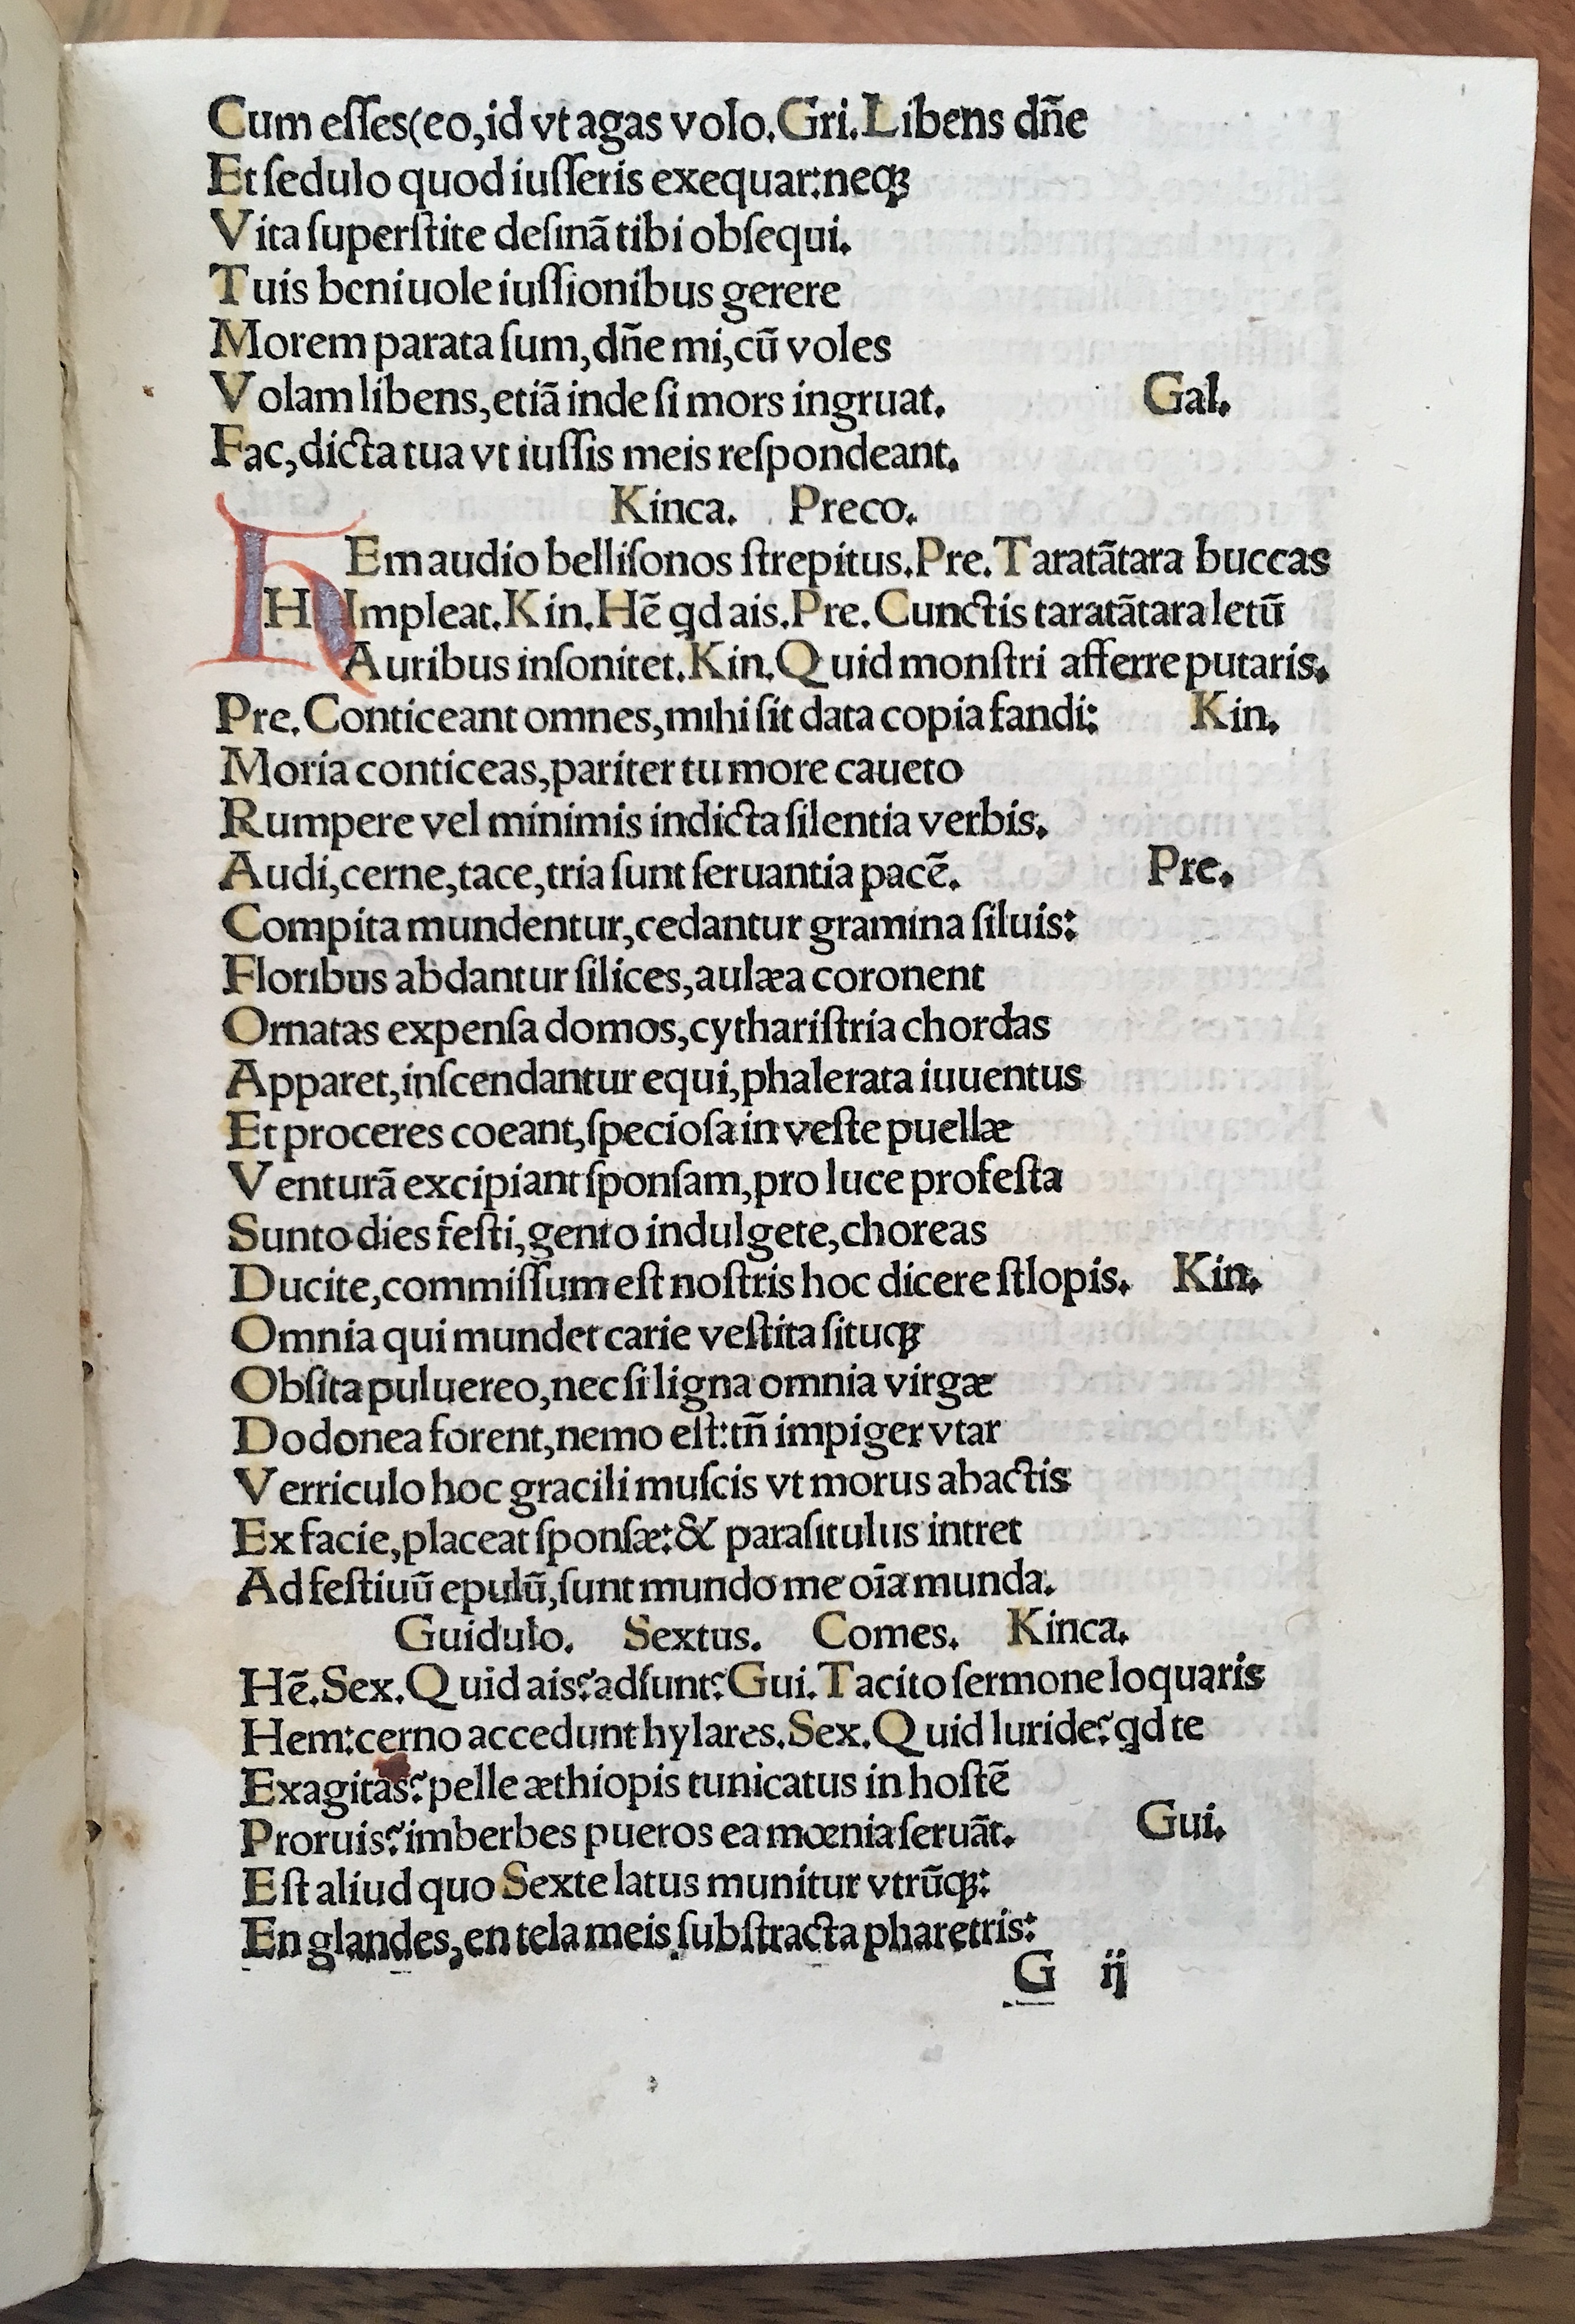 Cum eſſes(eo,id vt agas volo.Gri.Libens dñe
Et ſedulo quod iuſſeris exequar:neqꝫ
Vita ſuperſtite deſinã tibi obſequi.
Tuis beniuole iuſſionibus gerere
Morem parata ſum,dñe mi,cũ voles
Volam libens,etiã inde ſi mors ingruat. Gal.
Fac,dicta tua vt iuſſis meis reſpondeant.
Kinca. Preco.
HEm audio belliſonos ſtrepitus.Pre.Taratãtara buccas
Impleat.Kin.Hẽ qd ais.Pre.Cunctis taratãtara letũ
Auribus inſonitet.Kin.Quid monſtri afferre putaris.
Pre.Conticeant omnes,mihi ſit data copia fandi: Kin.
Moria conticeas,pariter tu more caueto
Rumpere vel minimis indicta ſilentia verbis.
Audi,cerne,tace,tria ſunt ſeruantia pacẽ. Pre.
Compita mundentur,cedantur gramina ſiluis:
Floribus abdantur ſilices,aulæa coronent
Ornatas expenſa domos,cythariſtria chordas
Apparet,inſcendantur equi,phalerata iuuentus
Et proceres coeant,ſpecioſa in veſte puellæ
Venturã excipiant ſponſam,pro luce profeſta
Sunto dies feſti,gento indulgete,choreas
Ducite,commiſſum eſt noſtris hoc dicere ſtlopis. Kin.
Omnia qui mundet carie veſtita ſituqꝫ
Obſita puluereo,nec ſi ligna omnia virgæ
Dodonea forent,nemo eſt:tñ impiger vtar
Verriculo hoc gracili muſcis vt morus abactis
Ex facie,placeat ſponſæ:& paraſitulus intret
Ad feſtiuũ epulũ,ſunt mundo me oĩa munda.
Guidulo. Sextus. Comes. Kinca.
Hẽ.Sex.Quid ais?adſunt?Gui.Tacito ſermone loquaris
Hem:cerno accedunt hylares.Sex.Quid luride?qd te
Exagitas?pelle æthiopis tunicatus in hoſtẽ
Proruis?imberbes pueros ea mœnia ſeruãt. Gui.
Eſt aliud quo Sexte latus munitur vtrũqꝫ:
En glandes,en tela meis ſubſtracta pharetris:
G ij